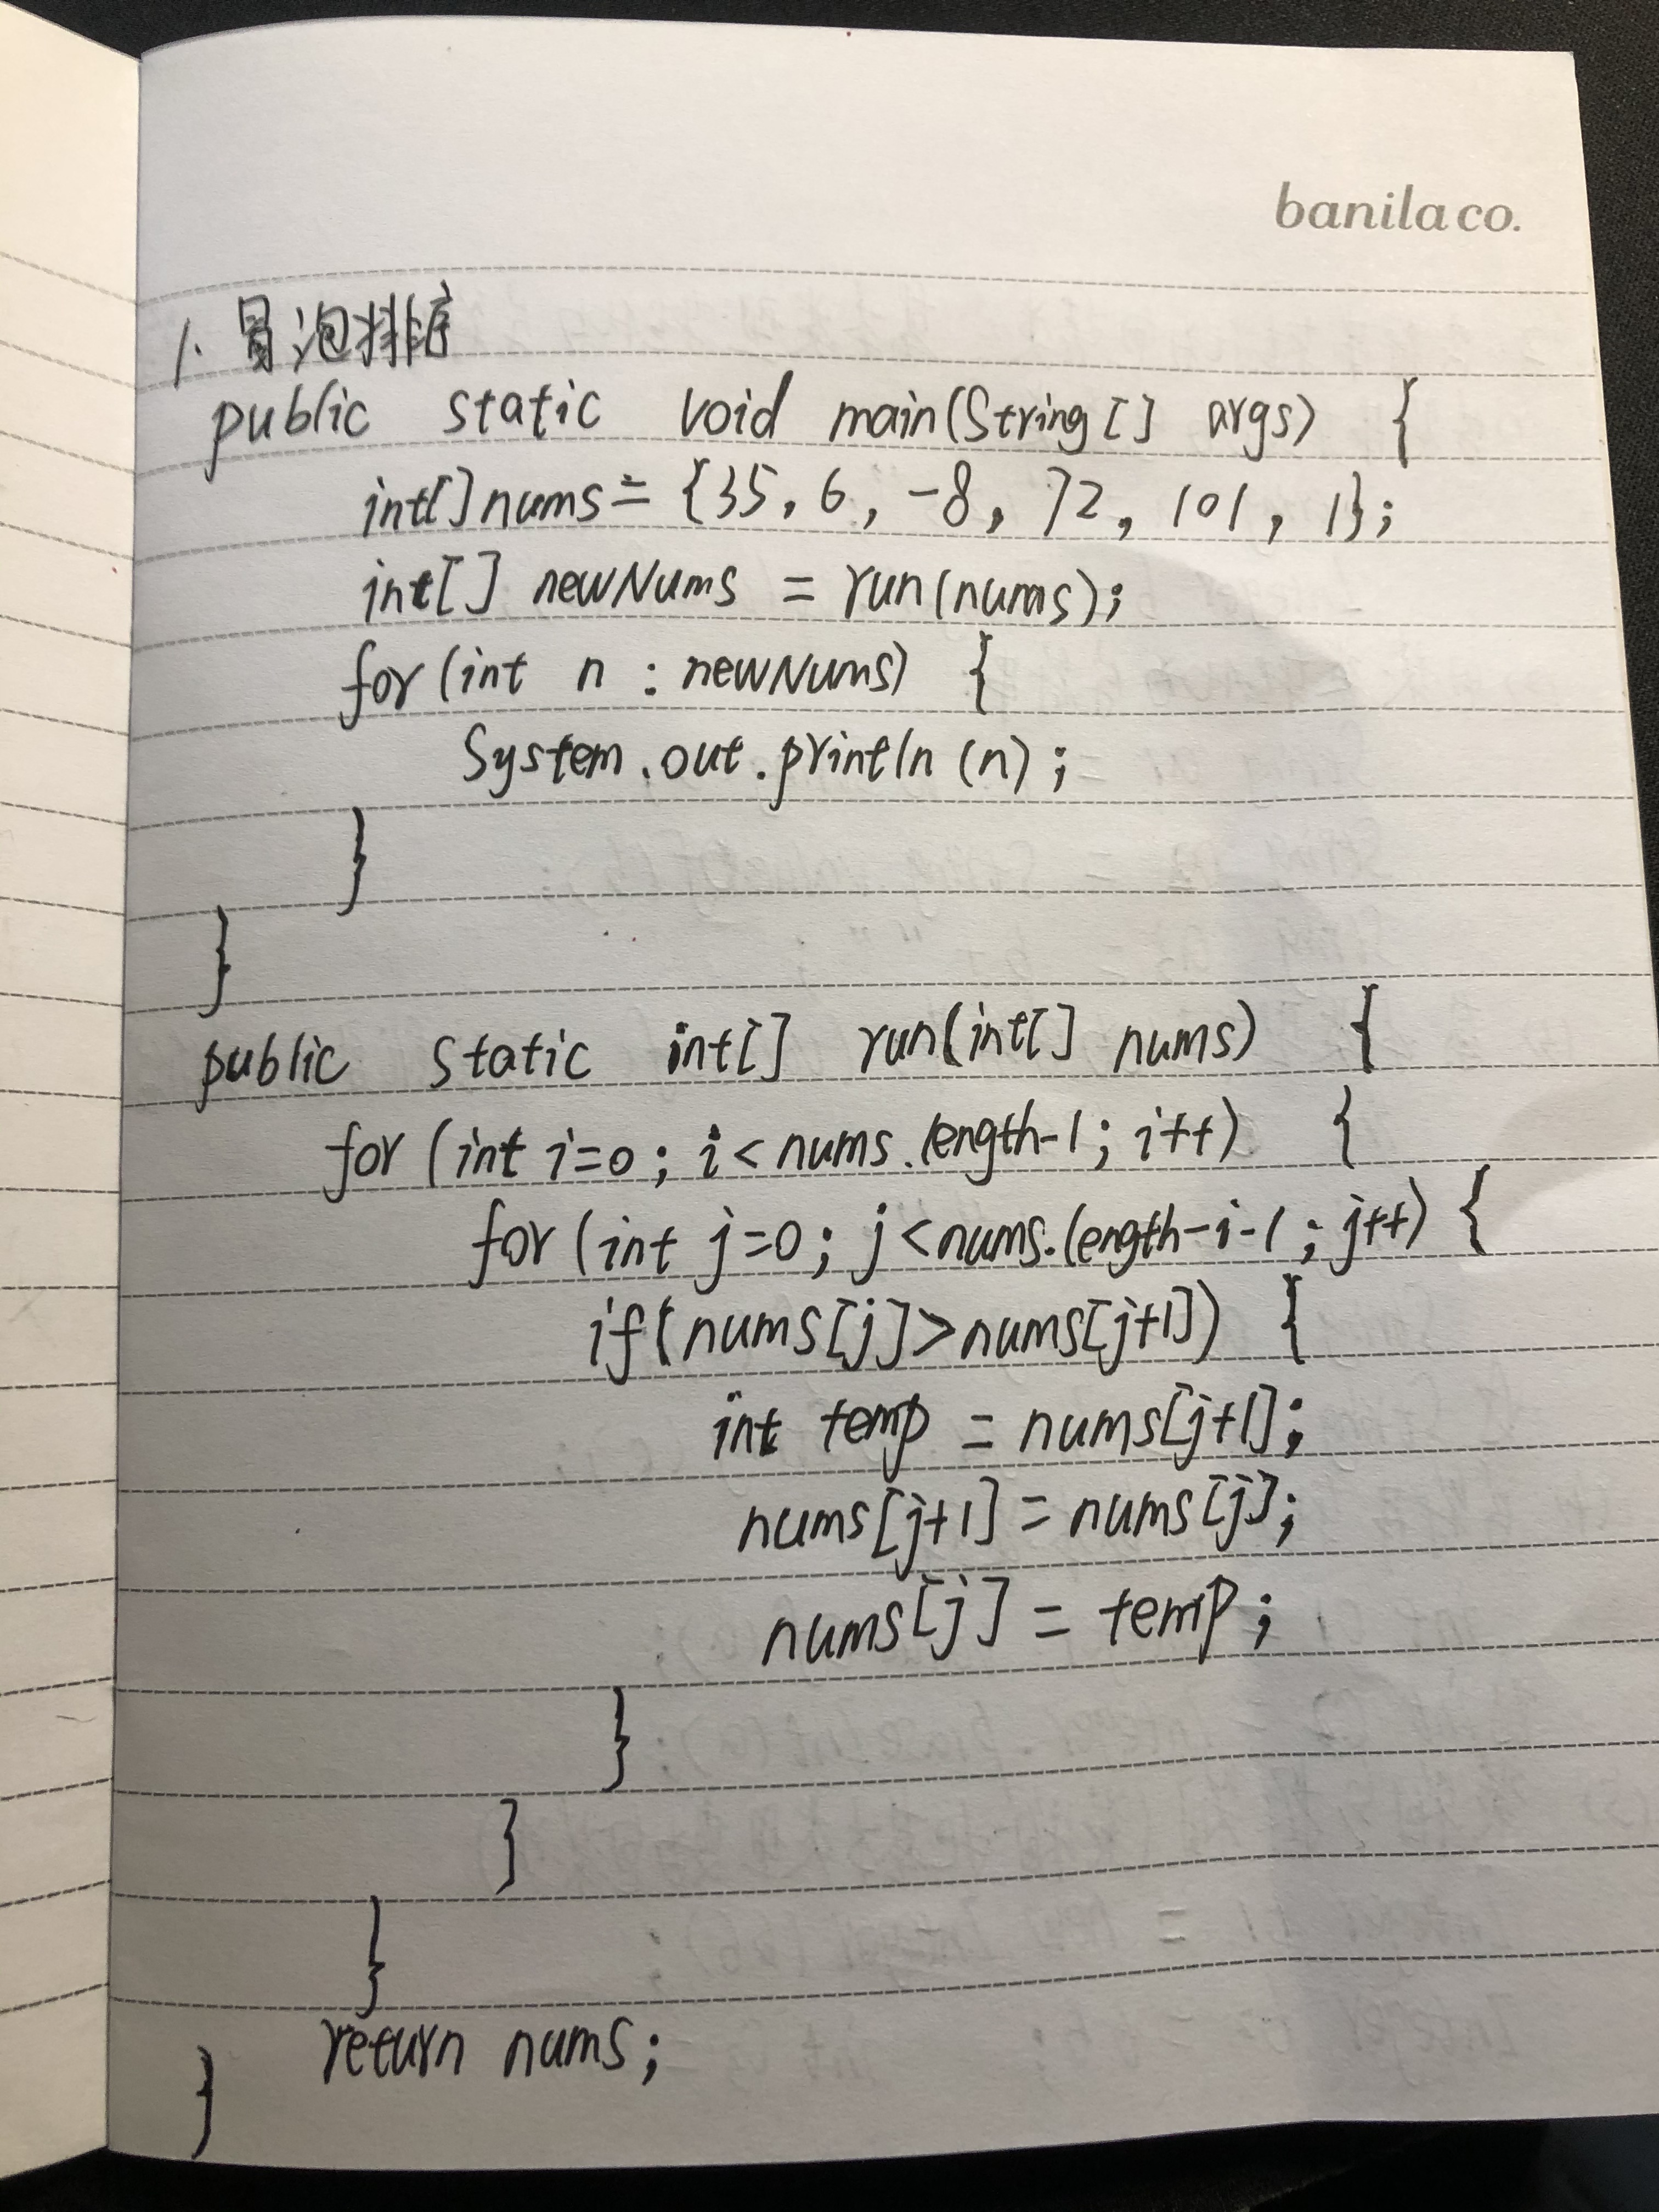 banila co.
1. 冒泡排序
public static void main(String[] args) {
int[] nums = {35, 6, -8, 72, 101, 1};
int[] newNums = run(nums);
for (int n : newNums) {
System.out.println(n);
}
}
public static int[] run(int[] nums) {
for (int i=0; i<nums.length-1; i++) {
for (int j=0; j<nums.length-i-1; j++) {
if(nums[j]>nums[j+1]) {
int temp = nums[j+1];
nums[j+1] = nums[j];
nums[j] = temp;
}
}
}
return nums;
}